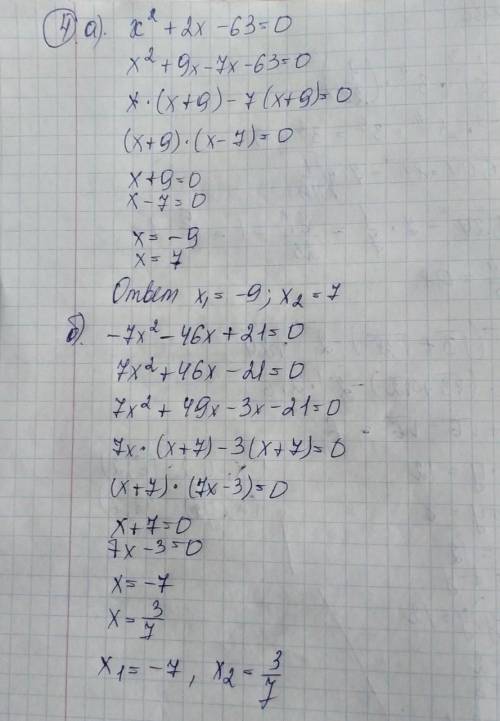 4 а). x² + 2x - 63 = 0
x² + 9x - 7x - 63 = 0
x · (x + 9) - 7 (x + 9) = 0
(x + 9) · (x - 7) = 0
x + 9 = 0
x - 7 = 0
x = -9
x = 7
Ответ x₁ = -9; x₂ = 7
б). -7x² - 46x + 21 = 0
7x² + 46x - 21 = 0
7x² + 49x - 3x - 21 = 0
7x · (x + 7) - 3 (x + 7) = 0
(x + 7) · (7x - 3) = 0
x + 7 = 0
7x - 3 = 0
x = -7
x = 3/7
x₁ = -7, x₂ = 3/7